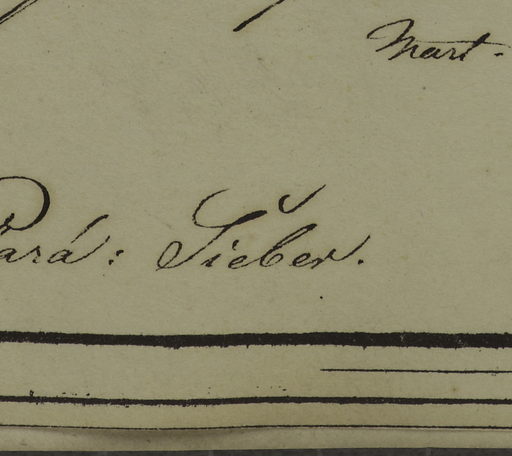 Mart.
Pará: Sieber.